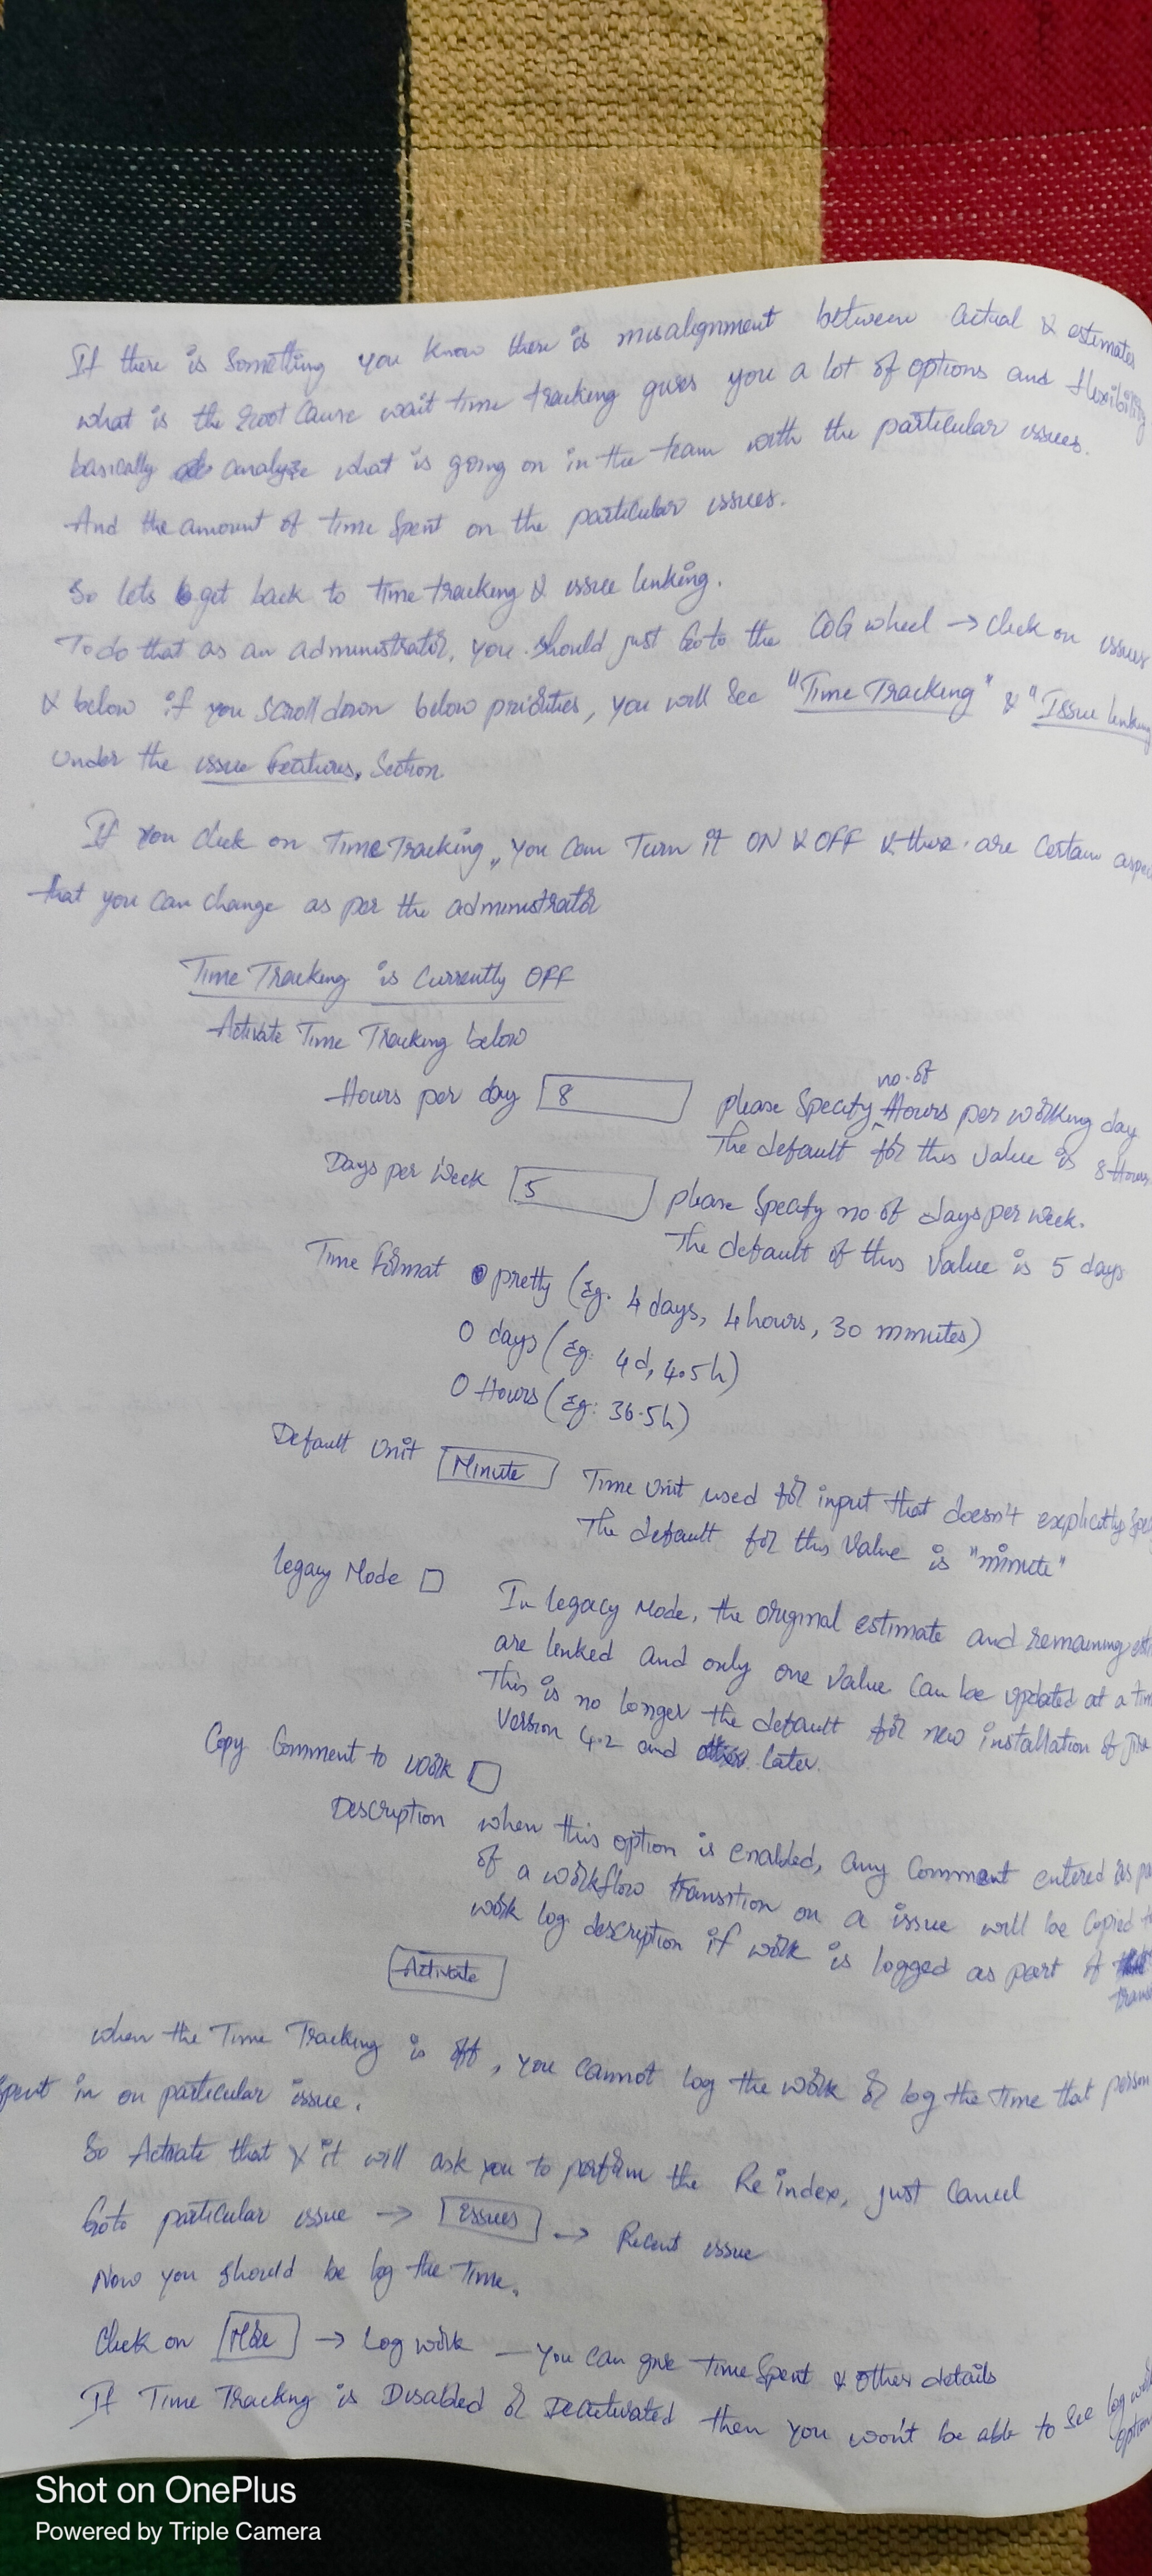 If there is Something you know there is misalignment between actual & estimates
what is the root cause wait time tracking gives you a lot of options and flexibility
basically analyze what is going on in the team with the particular issues.
And the amount of time spent on the particular issues.
So lets get back to time tracking & issue linking.
To do that as an administrator, you should just Goto the COG wheel → click on issues
& below if you scroll down below priorities, you will see "Time Tracking" & "Issue linking
under the issue Features, Section.
If you click on Time Tracking, you can Turn it ON & OFF & there are certain
that you can change as per the administrator
Time Tracking is Currently OFF
Activate Time Tracking below
Hours per day 8 please specify no. of Hours per working day
The default for this value is 8 Hours
Days per week 5 please specify no of days per week.
The default of this value is 5 days
Time Format pretty (Eg. 4 days, 4 hours, 30 minutes)
O days (Eg: 4d, 4.5h)
O Hours (Eg: 36.5h)
Default Unit Minute Time Unit used for input that doesn't explicitly
The default for this value is "minute"
Legacy Mode In legacy Mode, the original estimate and remaining
are linked and only one value can be updated at a
This is no longer the default for new installation of
Version 4.2 and later.
Copy Comment to work
Description when this option is enabled, any comment entered as
of a workflow transition on a issue will be copied
work log description if work is logged as part of
Activate
when the Time Tracking is off, you cannot log the work or log the time that person
spent in on particular issue.
So Activate that & it will ask you to perform the Re index, just cancel
Goto particular issue → Issues → Recent issue
Now you should be log the Time.
Click on More → Log work — You can give time spent & other details
If Time Tracking is Disabled or Deactivated then you won't be able to see log work
option